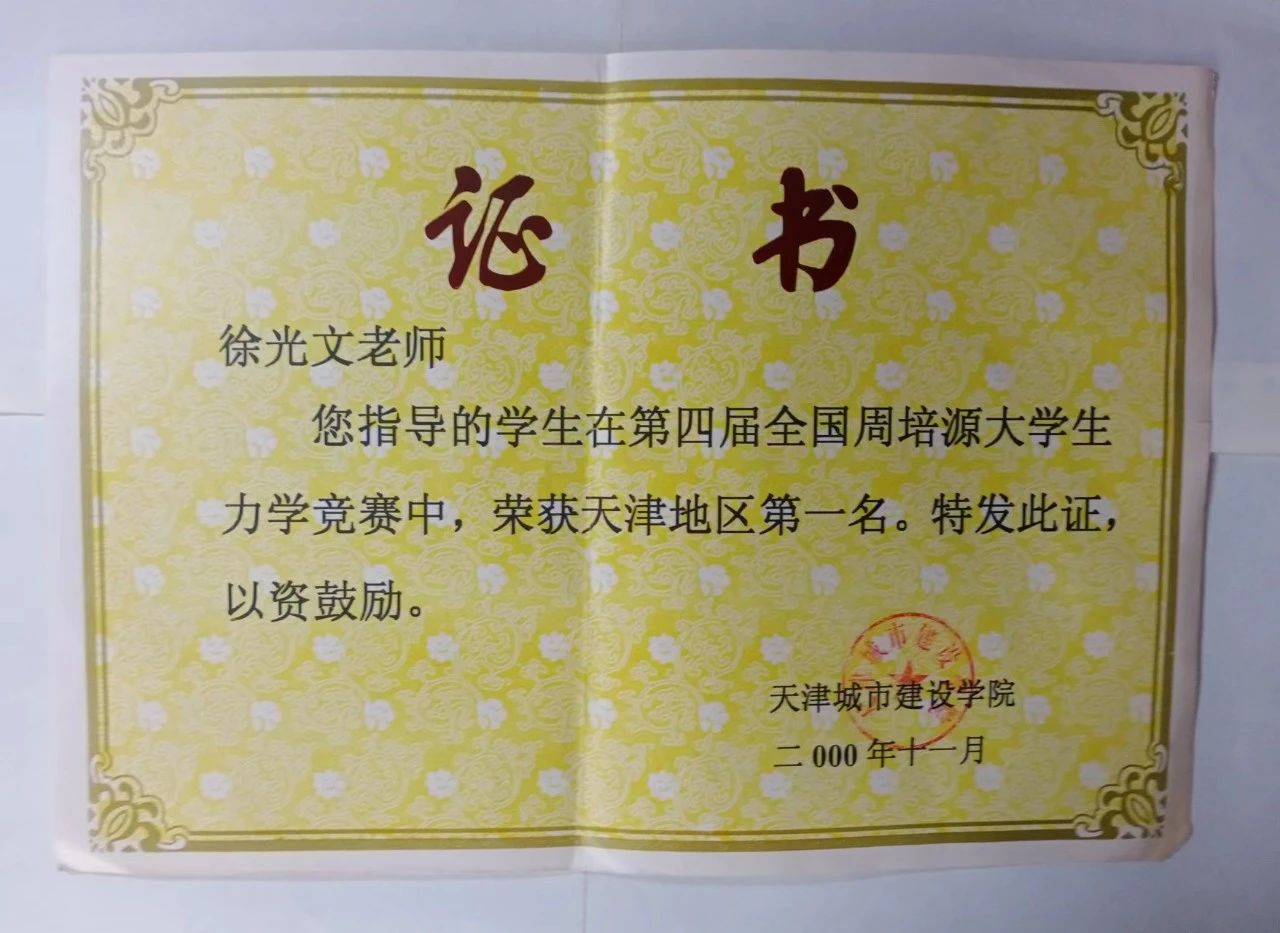 证书
徐光文老师
您指导的学生在第四届全国周培源大学生
力学竞赛中，荣获天津地区第一名。特发此证，
以资鼓励。
天津城市建设学院
二000年十一月
城市建设